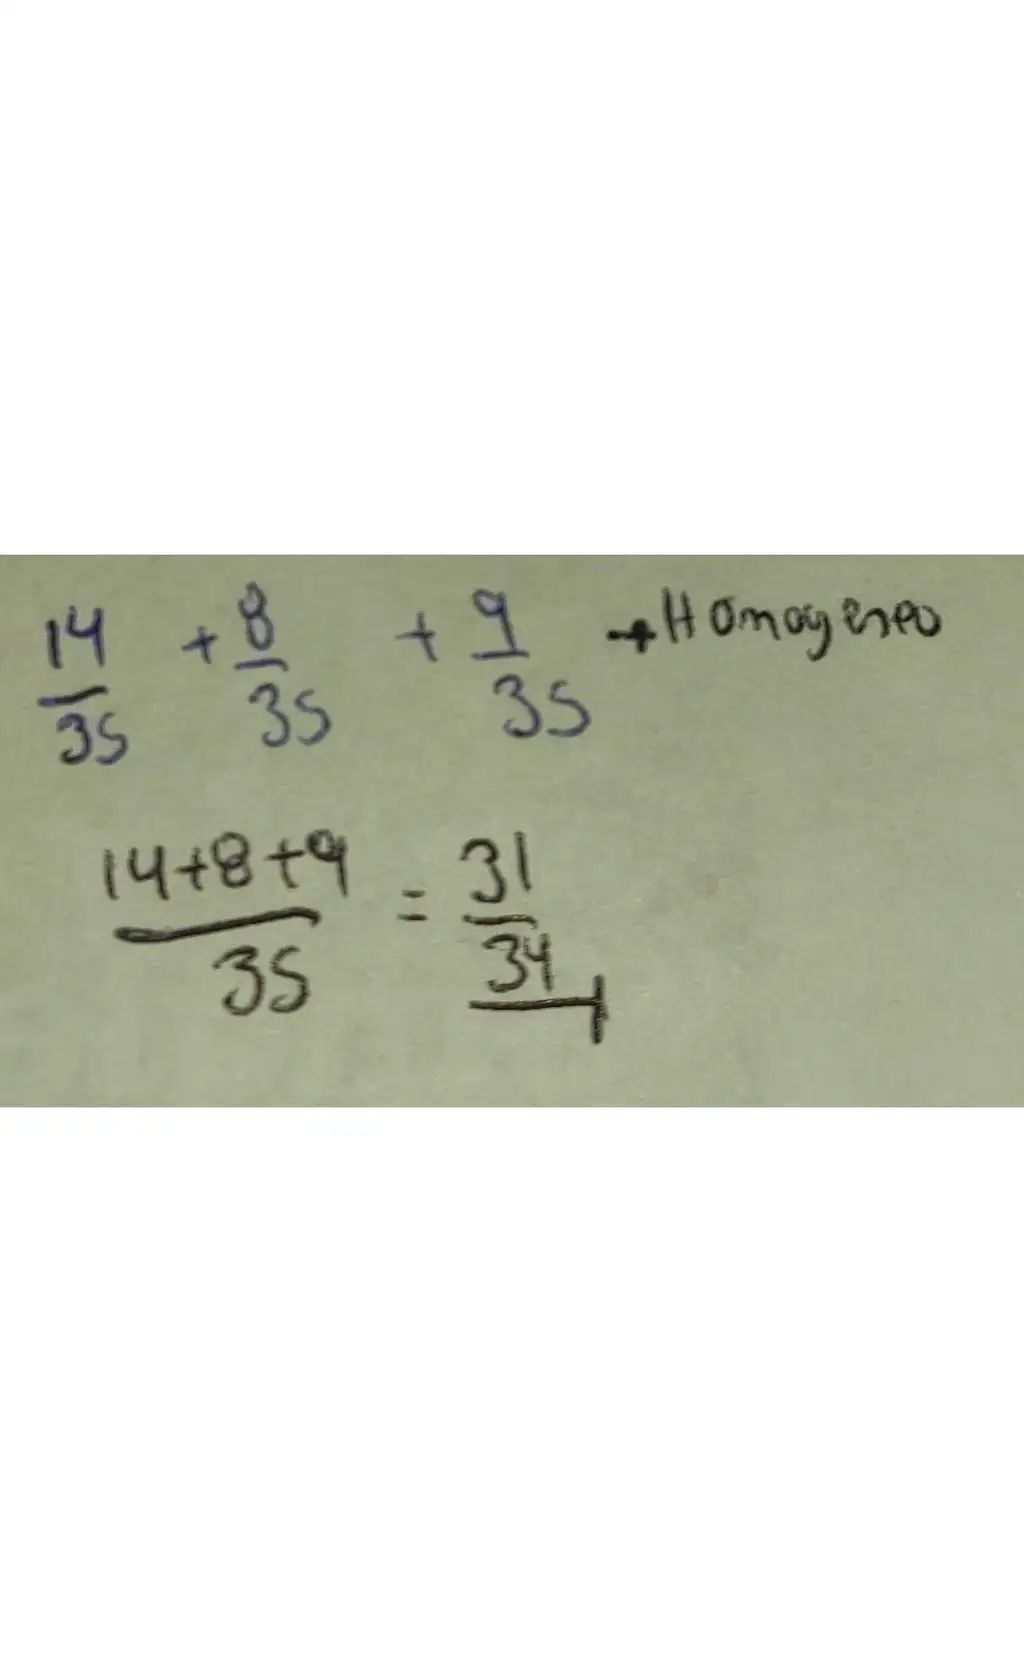 14/35 + 8/35 + 9/35 → Homogeneo
14+8+9/35 = 31/34